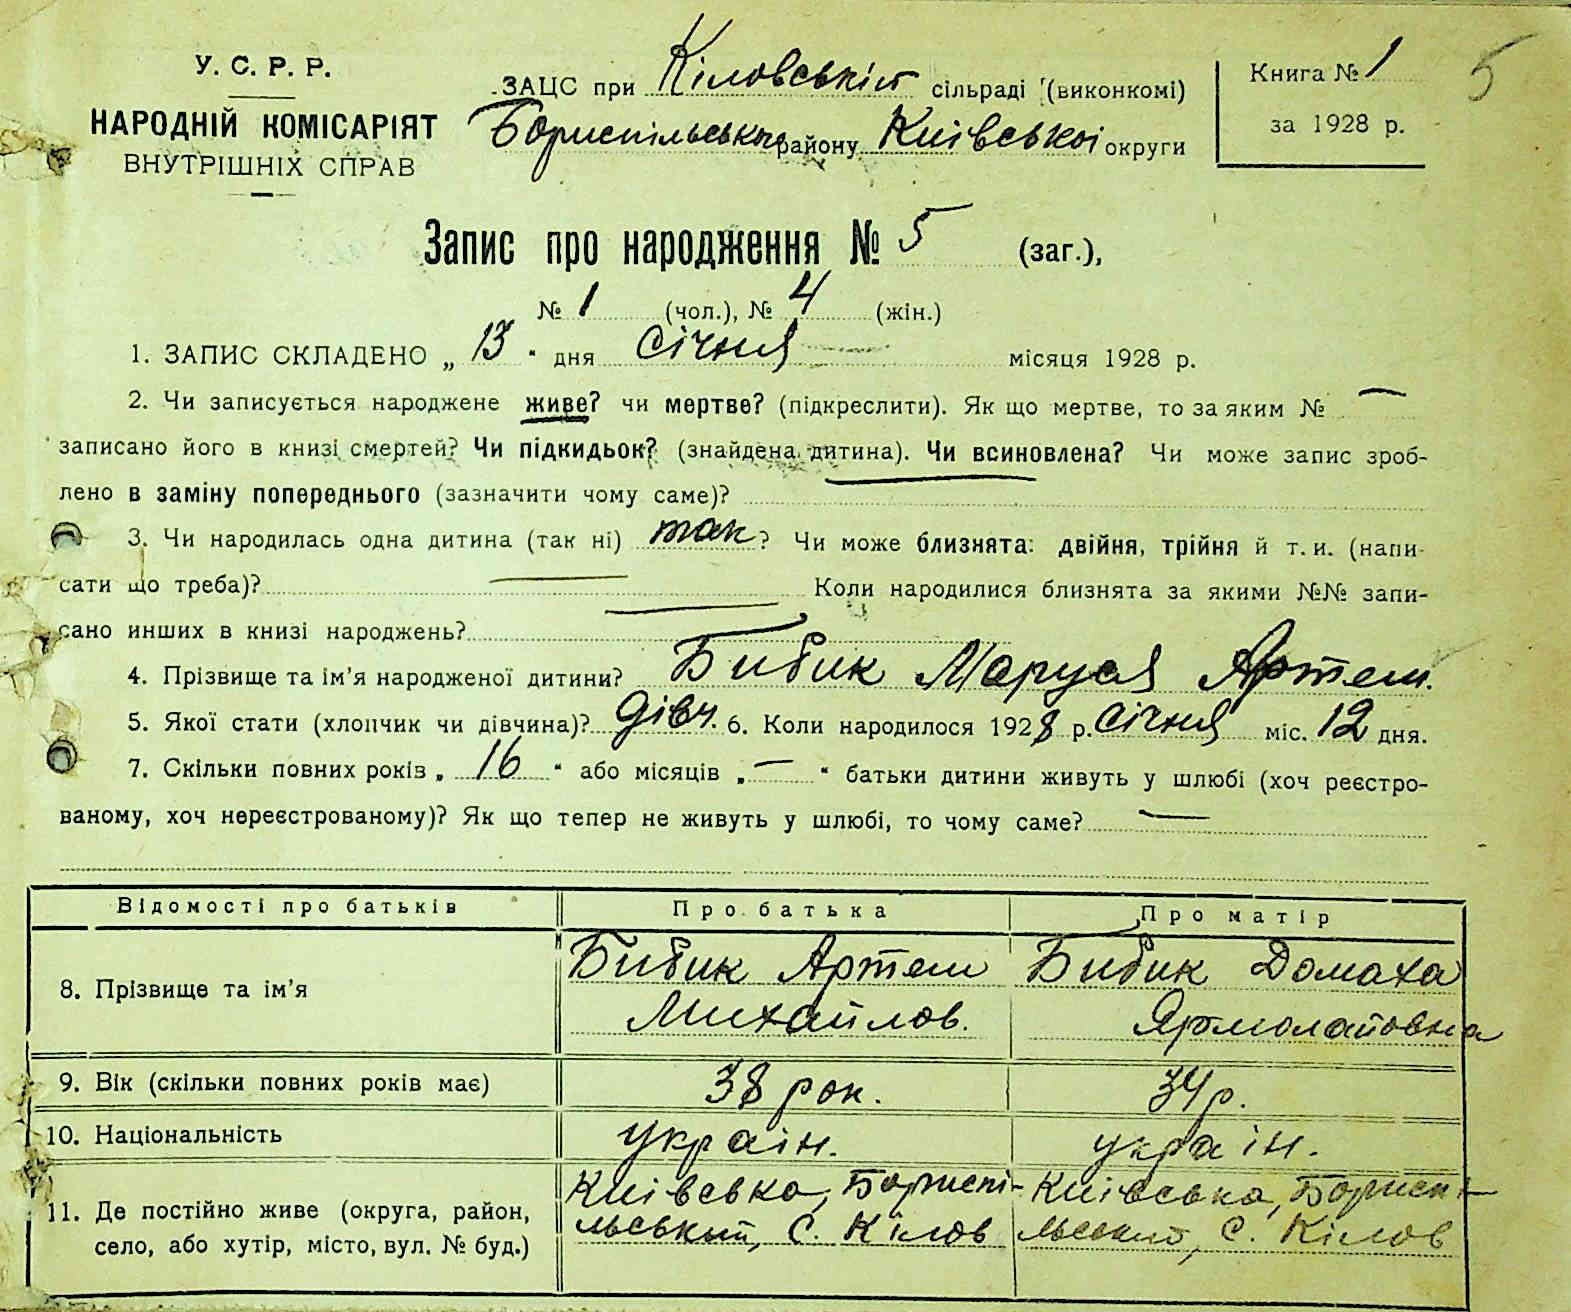 У. С. Р. Р.
НАРОДНІЙ КОМІСАРІЯТ
ВНУТРІШНІХ СПРАВ
ЗАЦС при Кіловській сільраді (виконкомі)
Бориспільського району Київської округи
Книга № 1
за 1928 р.
5
Запис про народження № 5 (заг.),
№ 1 (чол.), № 4 (жін.)
1. ЗАПИС СКЛАДЕНО „ 13 “ дня січня місяця 1928 р.
2. Чи записується народжене живе? чи мертве? (підкреслити). Як що мертве, то за яким № —
записано його в книзі смертей? Чи підкидьок? (знайдена дитина). Чи всиновлена? Чи може запис зроб-
лено в заміну попереднього (зазначити чому саме)? —
3. Чи народилась одна дитина (так ні) так? Чи може близнята: двійня, трійня й т. и. (напи-
сати що треба)? — Коли народилися близнята за якими №№ запи-
сано инших в книзі народжень? —
4. Прізвище та ім'я народженої дитини? Бибик Маруся Артем.
5. Якої стати (хлопчик чи дівчина)? дівч. 6. Коли народилося 1928 р. січня міс. 12 дня.
7. Скільки повних років „ 16 “ або місяців „ — “ батьки дитини живуть у шлюбі (хоч реєстро-
ваному, хоч нереєстрованому)? Як що тепер не живуть у шлюбі, то чому саме? —
Відомості про батьків Про батька Про матір
8. Прізвище та ім'я Бибик Артем Михайлов. Бибик Домаха Ярмолаповна
9. Вік (скільки повних років має) 38 рок. 34 р.
10. Національність україн. україн.
11. Де постійно живе (округа, район, Київська, Бориспі- Київська, Бориспі-
село, або хутір, місто, вул. № буд.) льський, с. Кілов льський, с. Кілов